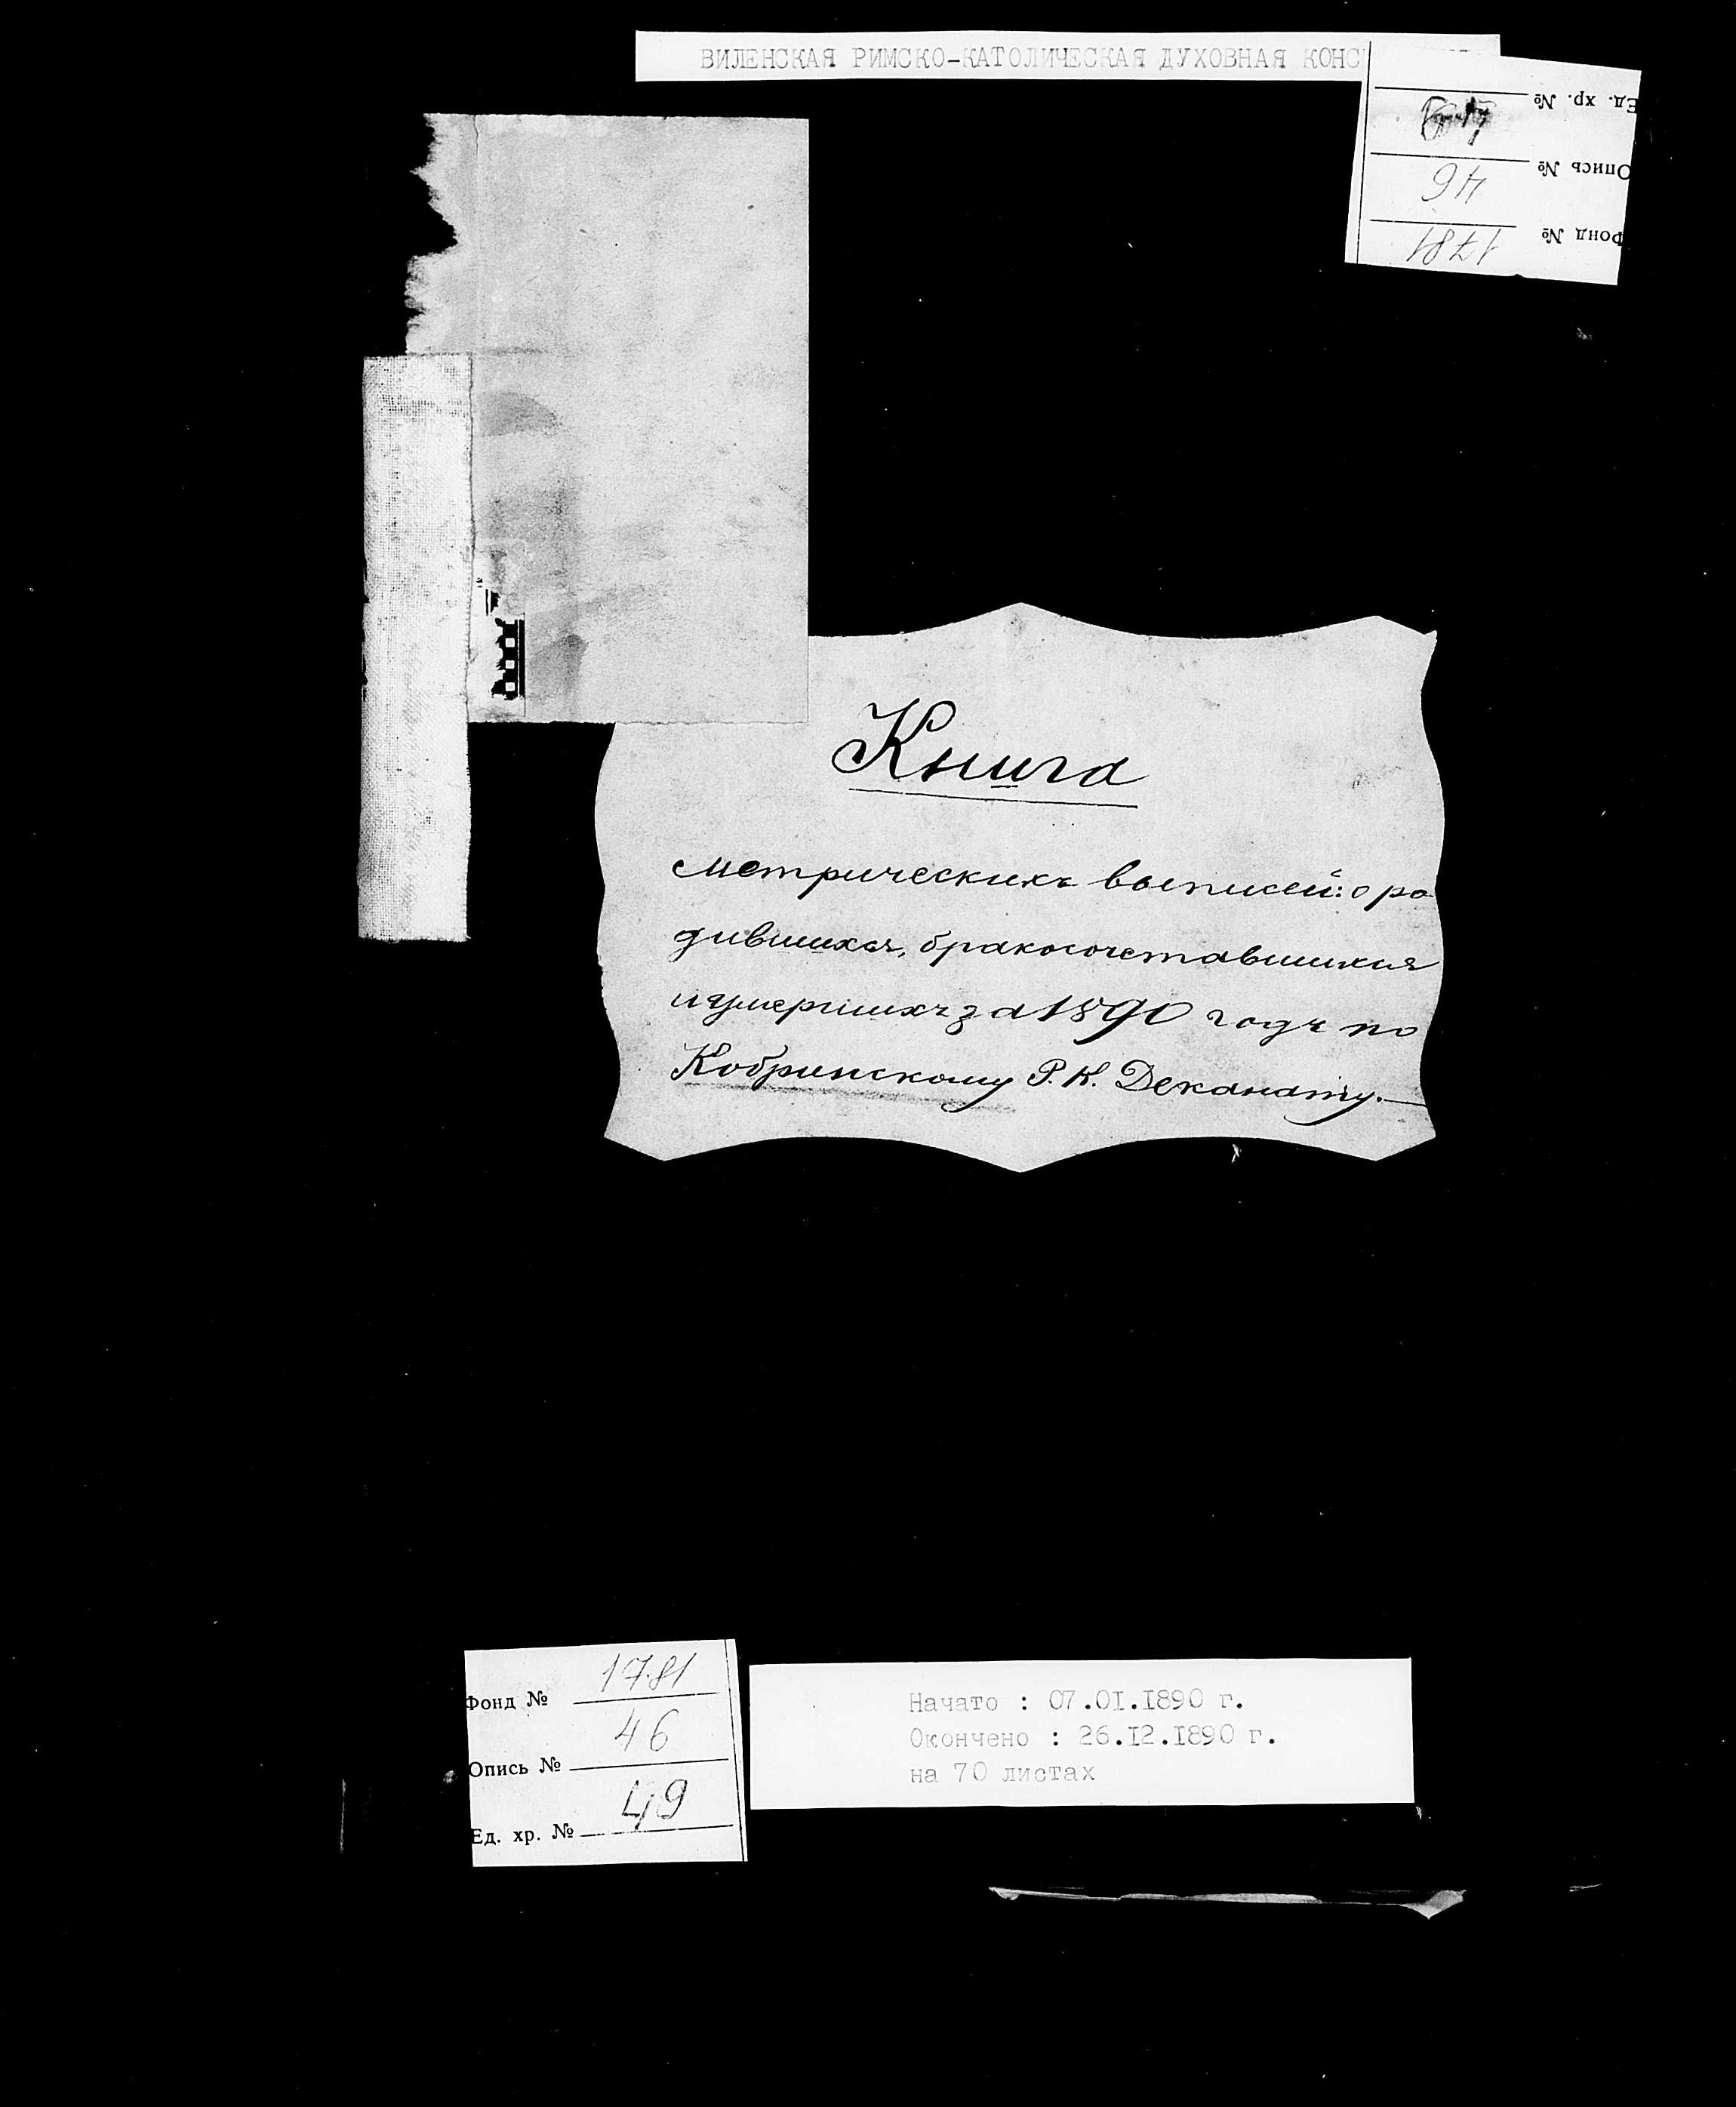 ВИЛЕНСКАЯ РИМСКО-КАТОЛИЧЕСКАЯ ДУХОВНАЯ КОНС
Ед. хр. №
Опись № 46
Фонд № 1781
Книга
метрическихъ выписей: о ро
дившихся, бракосочетавшихся
и умершихъ за 1890 годъ по
Кобринскому Р. К. Деканату.
Фонд № 1781
Опись № 46
Ед. хр. № 49
Начато : 07.01.1890 г.
Окончено : 26.12.1890 г.
на 70 листах